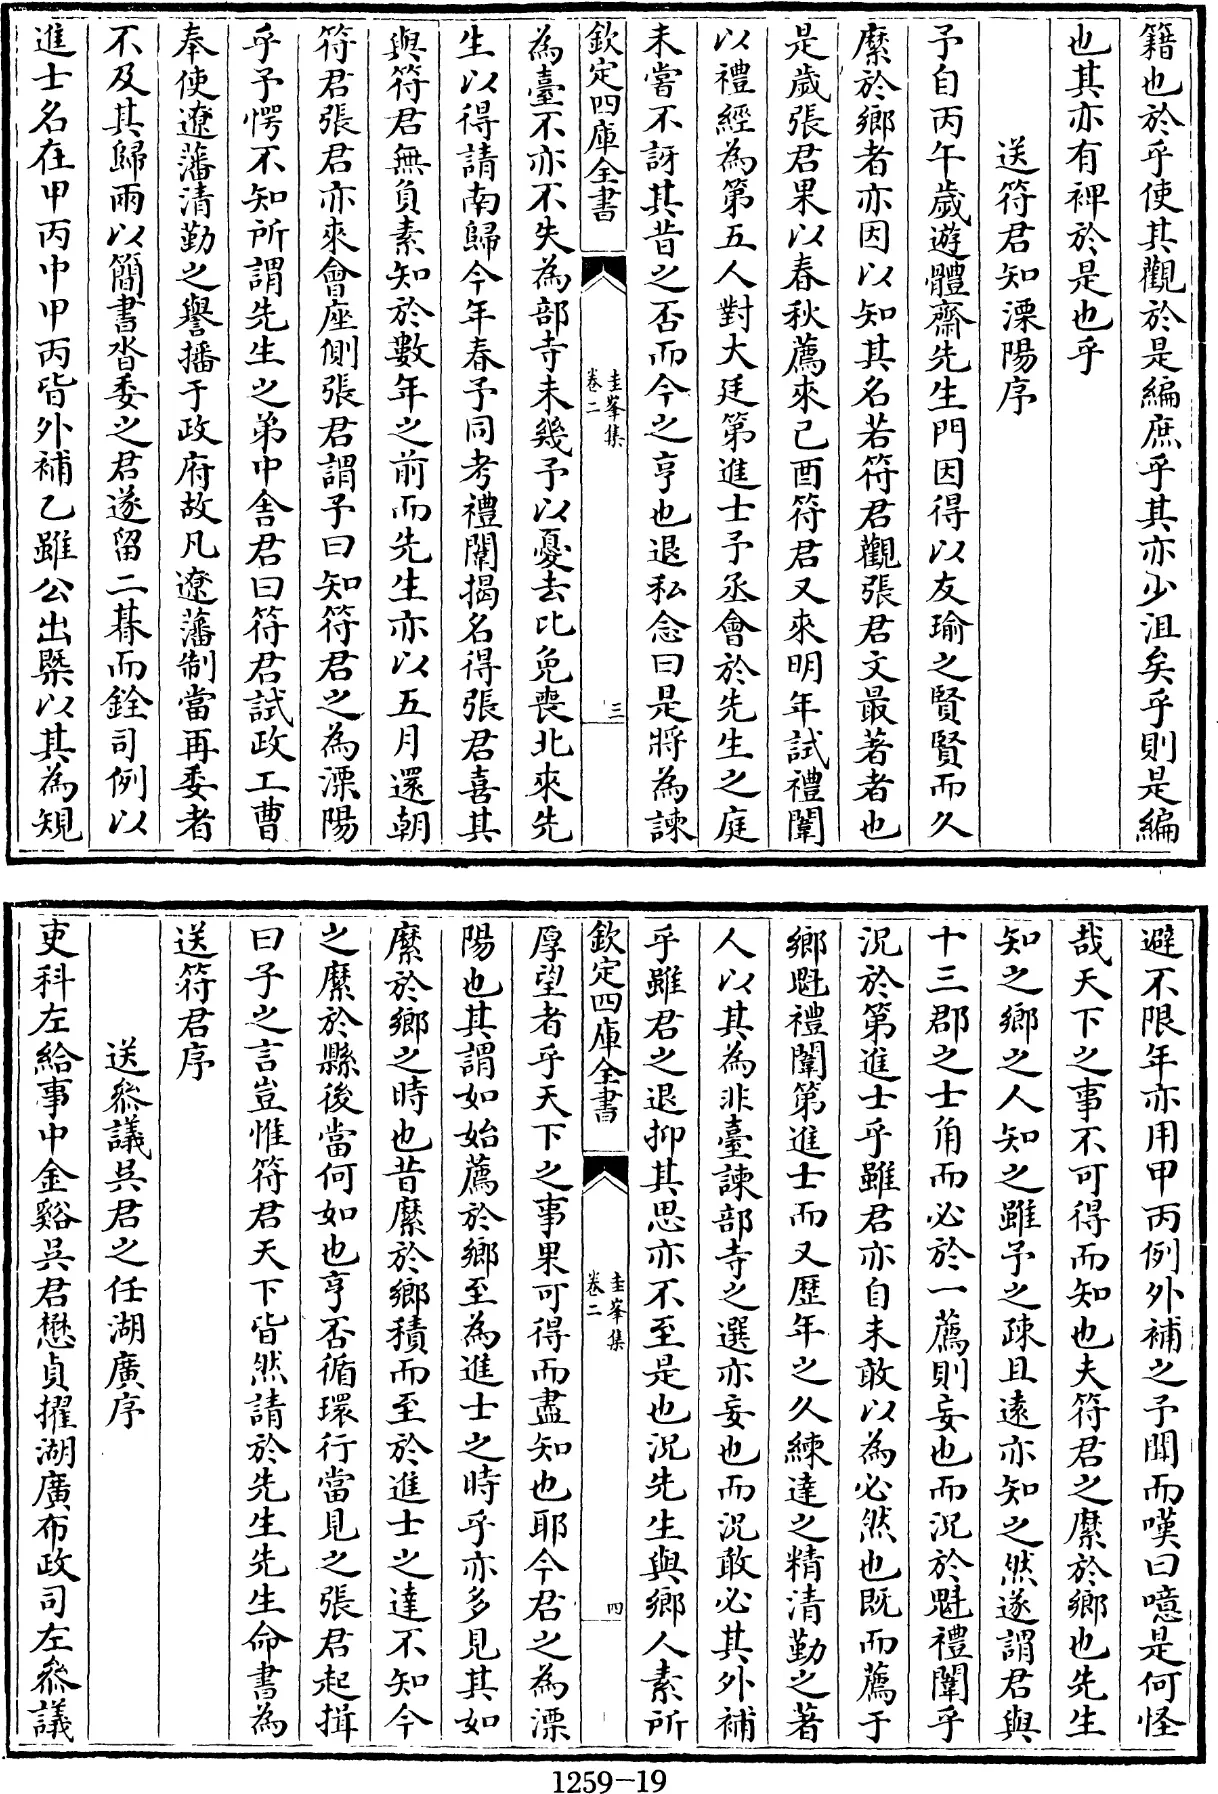 籍也於乎使其觀於是編庶乎其亦少沮矣乎則是編
也其亦有裨於是也乎
送符君知溧陽序
予自丙午歲遊體齋先生門因得以友瑜之賢賢而久
縻於鄉者亦因以知其名若符君觀張君文最著者也
是歲張君果以春秋薦來己酉符君又來明年試禮闈
以禮經為第五人對大廷第進士予丞會於先生之庭
未嘗不訝其昔之否而今之亨也退私念曰是將為諫
欽定四庫全書
圭峯集
卷二
三
為臺不亦不失為部寺未幾予以憂去比免喪北來先
生以得請南歸今年春予同考禮闈揭名得張君喜其
與符君無負素知於數年之前而先生亦以五月還朝
符君張君亦來會座側張君謂予曰知符君之為溧陽
乎予愕不知所謂先生之弟中舍君曰符君試政工曹
奉使遼藩清勤之譽播于政府故凡遼藩制當再委者
不及其歸兩以簡書沓委之君遂留二朞而銓司例以
進士名在甲丙中甲丙皆外補乙雖公出槩以其為規
避不限年亦用甲丙例外補之予聞而嘆曰噫是何怪
哉天下之事不可得而知也夫符君之縻於鄉也先生
知之鄉之人知之雖予之疎且遠亦知之然遂謂君與
十三郡之士角而必於一薦則妄也而況於魁禮闈乎
況於第進士乎雖君亦自未敢以為必然也既而薦于
鄉魁禮闈第進士而又歷年之久練達之精清勤之著
人以其為非臺諫部寺之選亦妄也而況敢必其外補
乎雖君之退抑其思亦不至是也況先生與鄉人素所
欽定四庫全書
圭峯集
卷二
四
厚望者乎天下之事果可得而盡知也耶今君之為溧
陽也其謂如始薦於鄉至為進士之時乎亦多見其如
縻於鄉之時也昔縻於鄉積而至於進士之達不知今
之縻於縣後當何如也亨否循環行當見之張君起揖
曰子之言豈惟符君天下皆然請於先生先生命書為
送符君序
送叅議吳君之任湖廣序
吏科左給事中金谿吳君懋貞擢湖廣布政司左叅議
1259-19